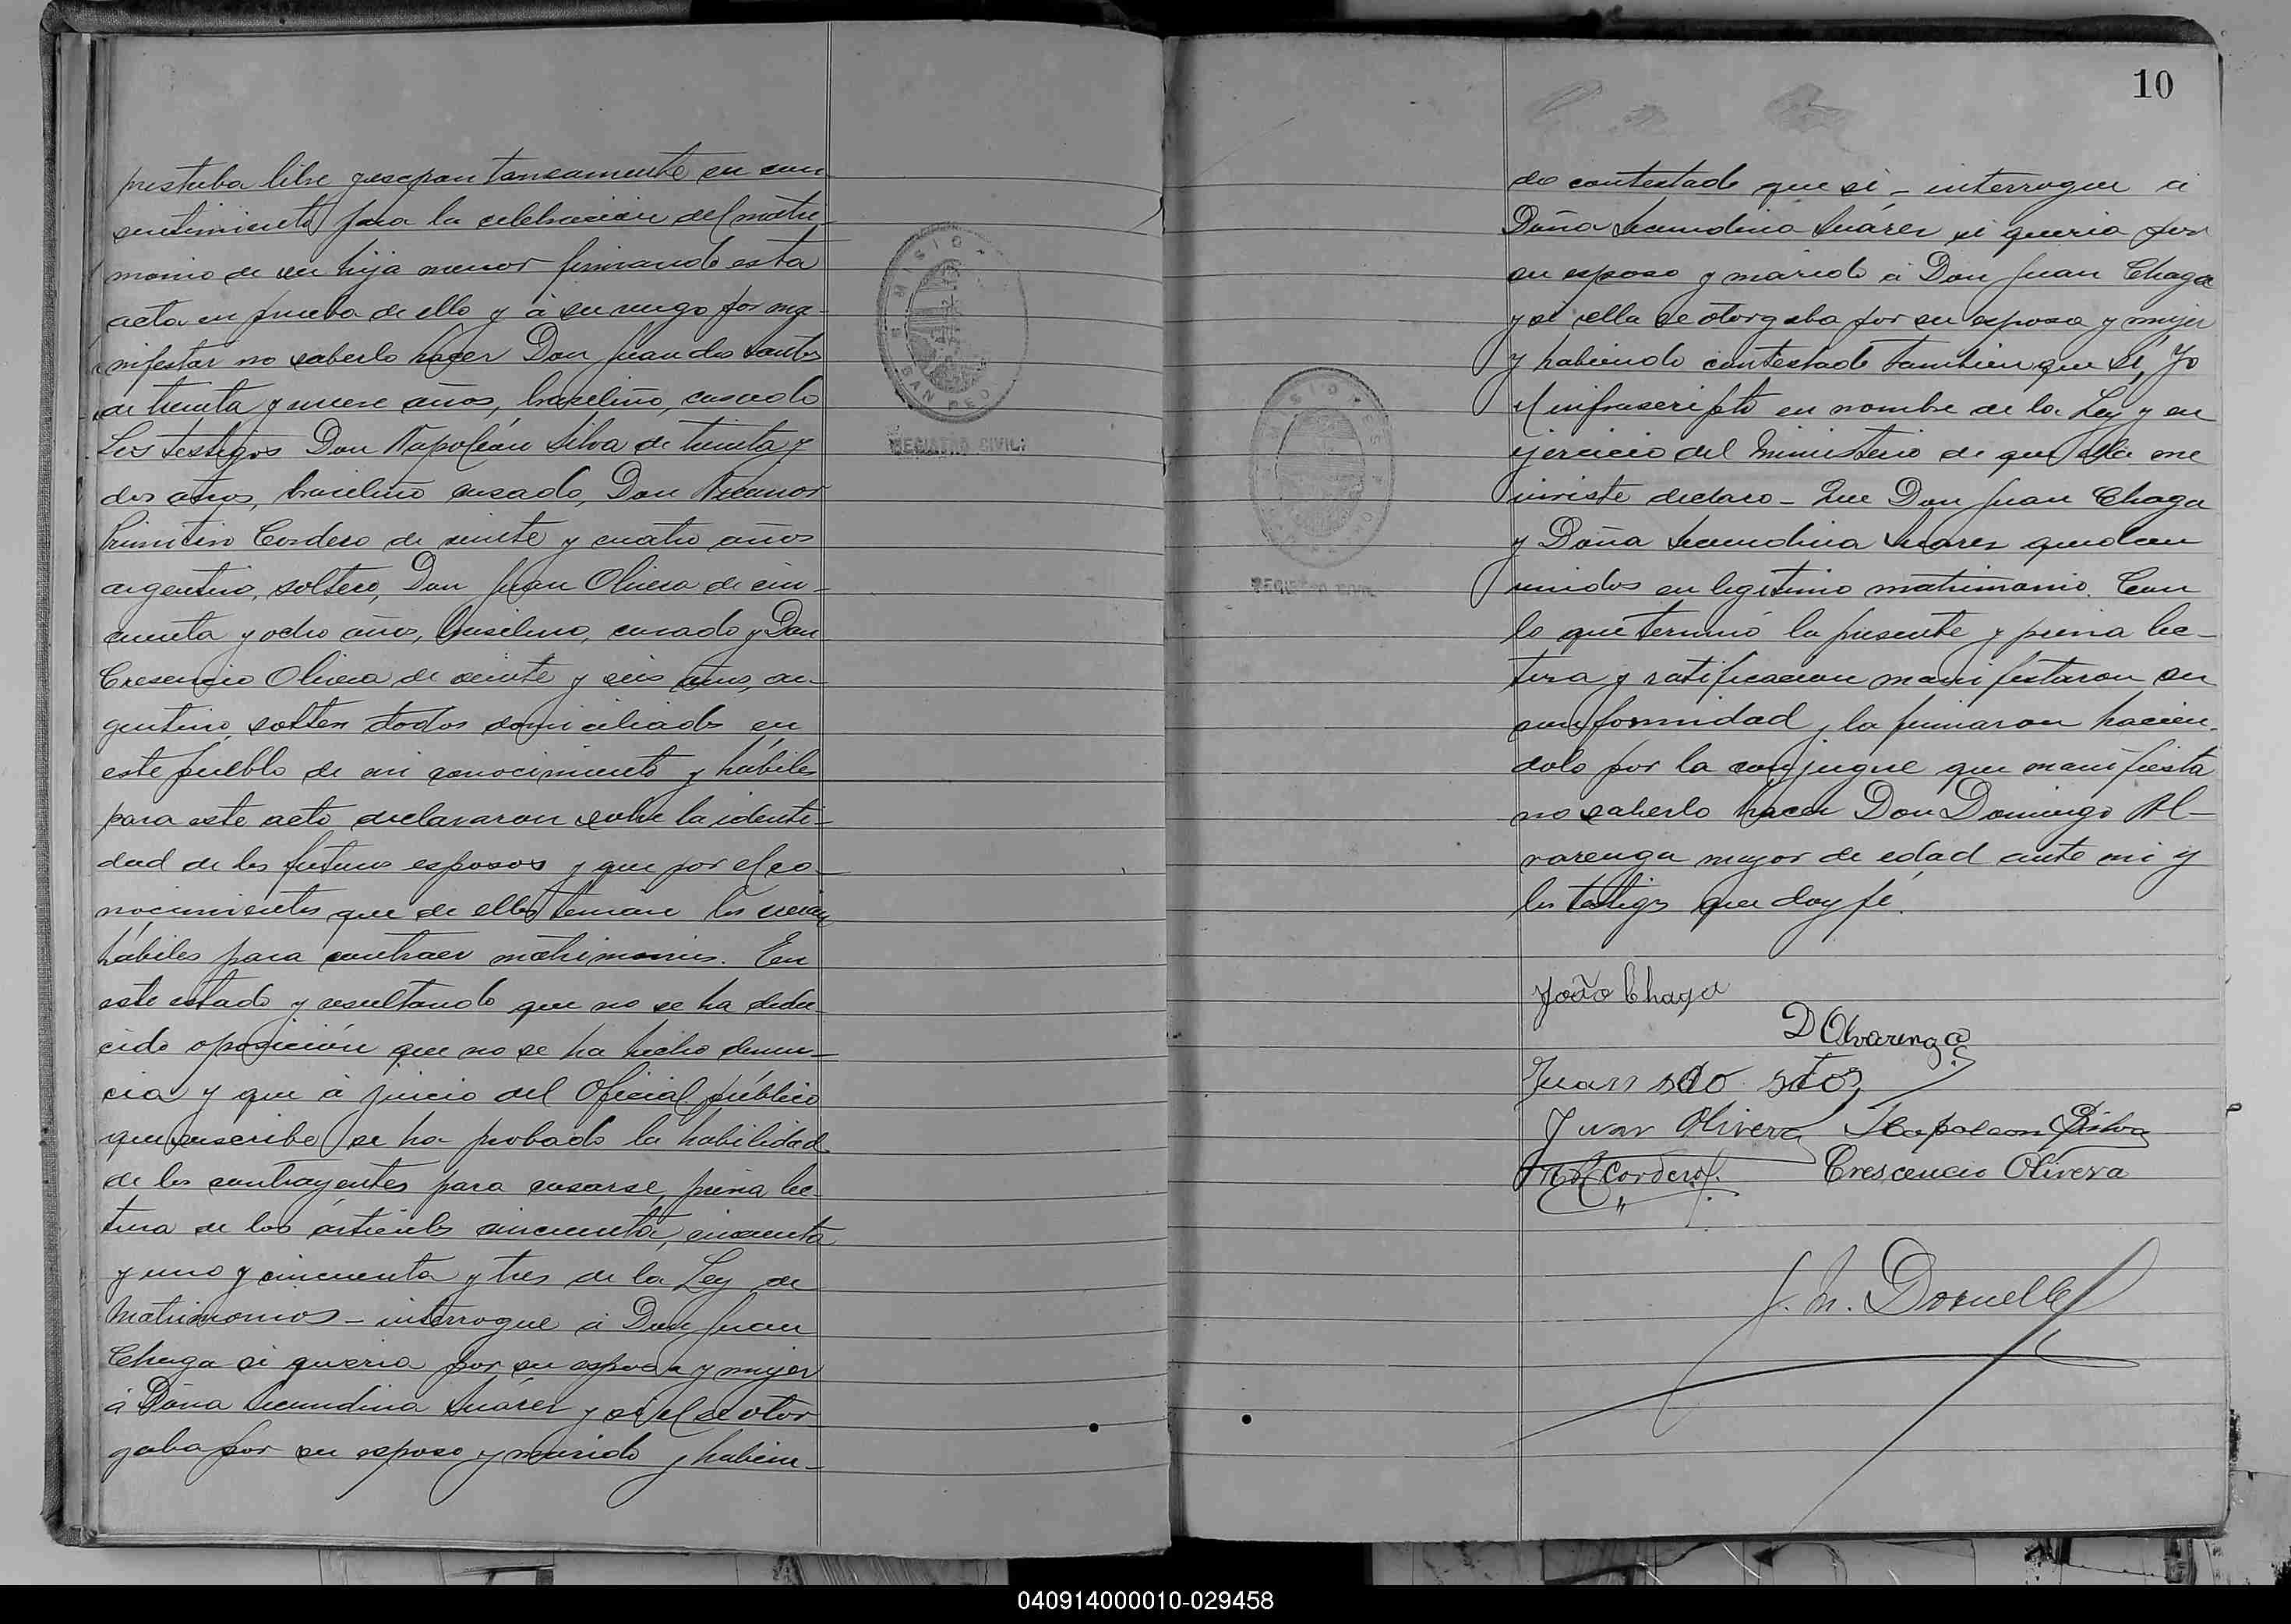 prestaba libre y espontaneamente su con-
sentimiento para la celebracion del matri-
monio de su hija menor firmando esta
acta en prueba de ello y á su ruego por ma-
nifestar no saberlo hacer Don Juan dos Santos
de treinta y nueve años, brasileño, casado
Los testigos Don Napoleón Silva de treinta y
dos años, brasileño casado, Don Nicanor
Primitivo Cordero de veinte y cuatro años
argentino, soltero, Don Juan Olivera de cin-
cuenta y ocho años, brasilero, casado y Don
Cresencio Olivera de veinte y seis años, ar-
gentino, soltero todos domiciliados en
este pueblo de mi conocimiento y hábiles
para este acto declararon sobre la identi-
dad de los futuros esposos y que por el co-
nocimientos que de ellos tenian los creian
hábiles para contraer matrimonio. En
este estado y resultando que no se ha dedu-
cido oposición que no se ha hecho denun-
cia y que á juicio del Oficial público
que suscribe se ha probado la habilidad
de los contrayentes para casarse, prévia lec-
tura de los artículos cincuenta, cincuenta
y uno y cincuenta y tres de la Ley de
Matrimonios - interrogue á Don Juan
Chaga si queria por su esposa y mujer
á Doña Secundina Suárez y si el se otor
gaba por su esposo y marido y habien-
MISIONES
SAN PEDRO
REGISTRO CIVIL
10
do contestado que si - interrogue á
Doña Secundina Suárez si queria por
su esposo y marido á Don Juan Chaga
y si ella se otorgaba por su esposa y mujer
y habiendo contestado tambien que si, Yo
el infrascripto en nombre de la Ley y en
ejercicio del Ministerio de que ella me
inviste declaro - Que Don Juan Chaga
y Doña Secundina Suarez quedan
unidos en legitimo matrimonio. Con
lo que terminó la presente y previa lec-
tura y ratificacion manifestaron su
conformidad y la firmaron hacien-
dolo por la conjugue que manifiesta
no saberlo hacer Don Domingo Al-
varenga mayor de edad ante mi y
los testigos que doy fé.
MISIONES
REGISTRO CIVIL
João Chaga
D Alvarenga
Juan do stos
Juan Olivera Napoleon Silva
Cordero Crescencio Olivera
J. N. Dornelles
040914000010-029458